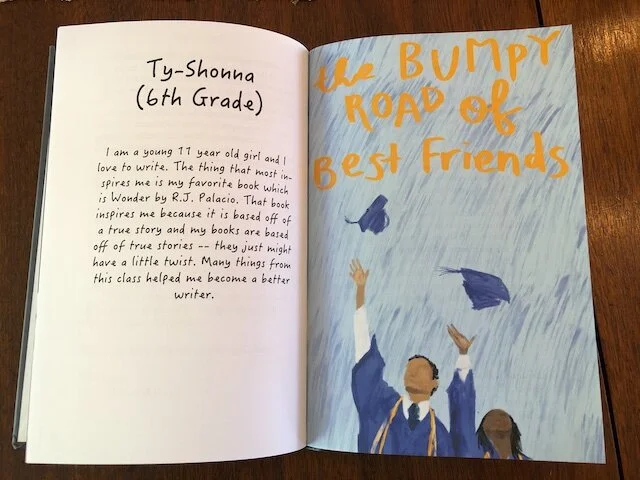 Ty-Shonna
(6th Grade)
I am a young 11 year old girl and I
love to write. The thing that most in-
spires me is my favorite book which
is Wonder by R.J. Palacio. That book
inspires me because it is based off of
a true story and my books are based
off of true stories -- they just might
have a little twist. Many things from
this class helped me become a better
writer.
the BUMPY
ROAD of
Best Friends